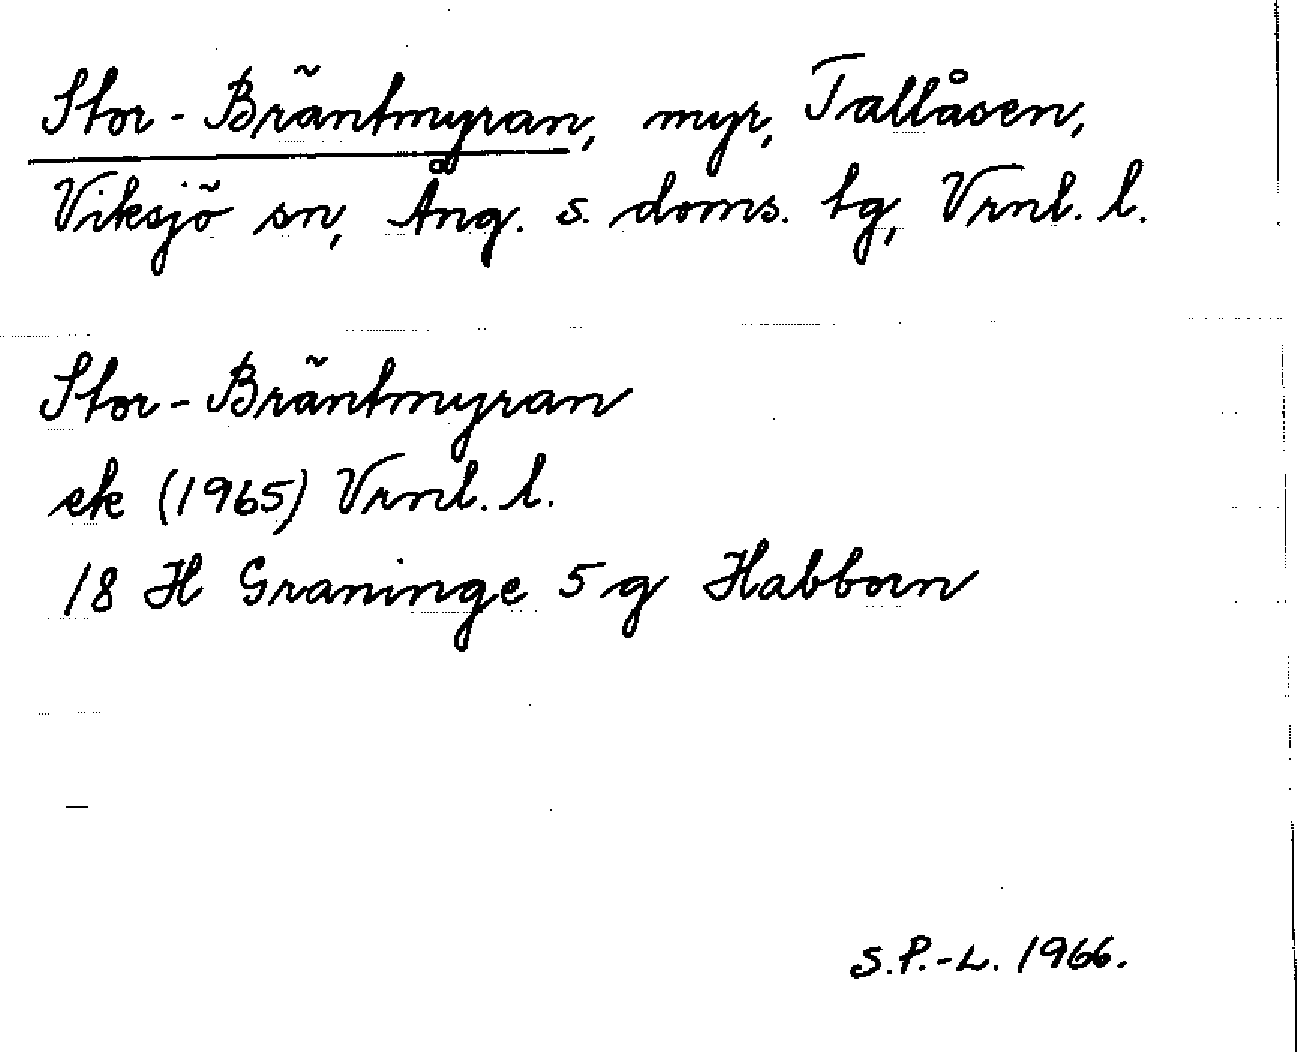 Stor-Bräntmyran, myr, Tallåsen,
Viksjö sn, Ång. s. doms. tg, Vrnl. l.
Stor-Bräntmyran
ek (1965) Vrnl. l.
18 H Graninge 5 g Habborn
S.P.-L. 1966.